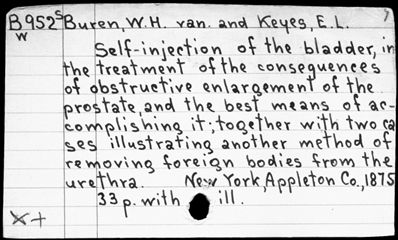 B952S Buren, W.H. van. and Keyes, E.L. 7
W
Self-injection of the bladder, in
the treatment of the consequences
of obstructive enlargement of the
prostate, and the best means of ac-
complishing it; together with two ca
ses illustrating another method of
removing foreign bodies from the
urethra. New York, Appleton Co., 1875
33 p. with ill.